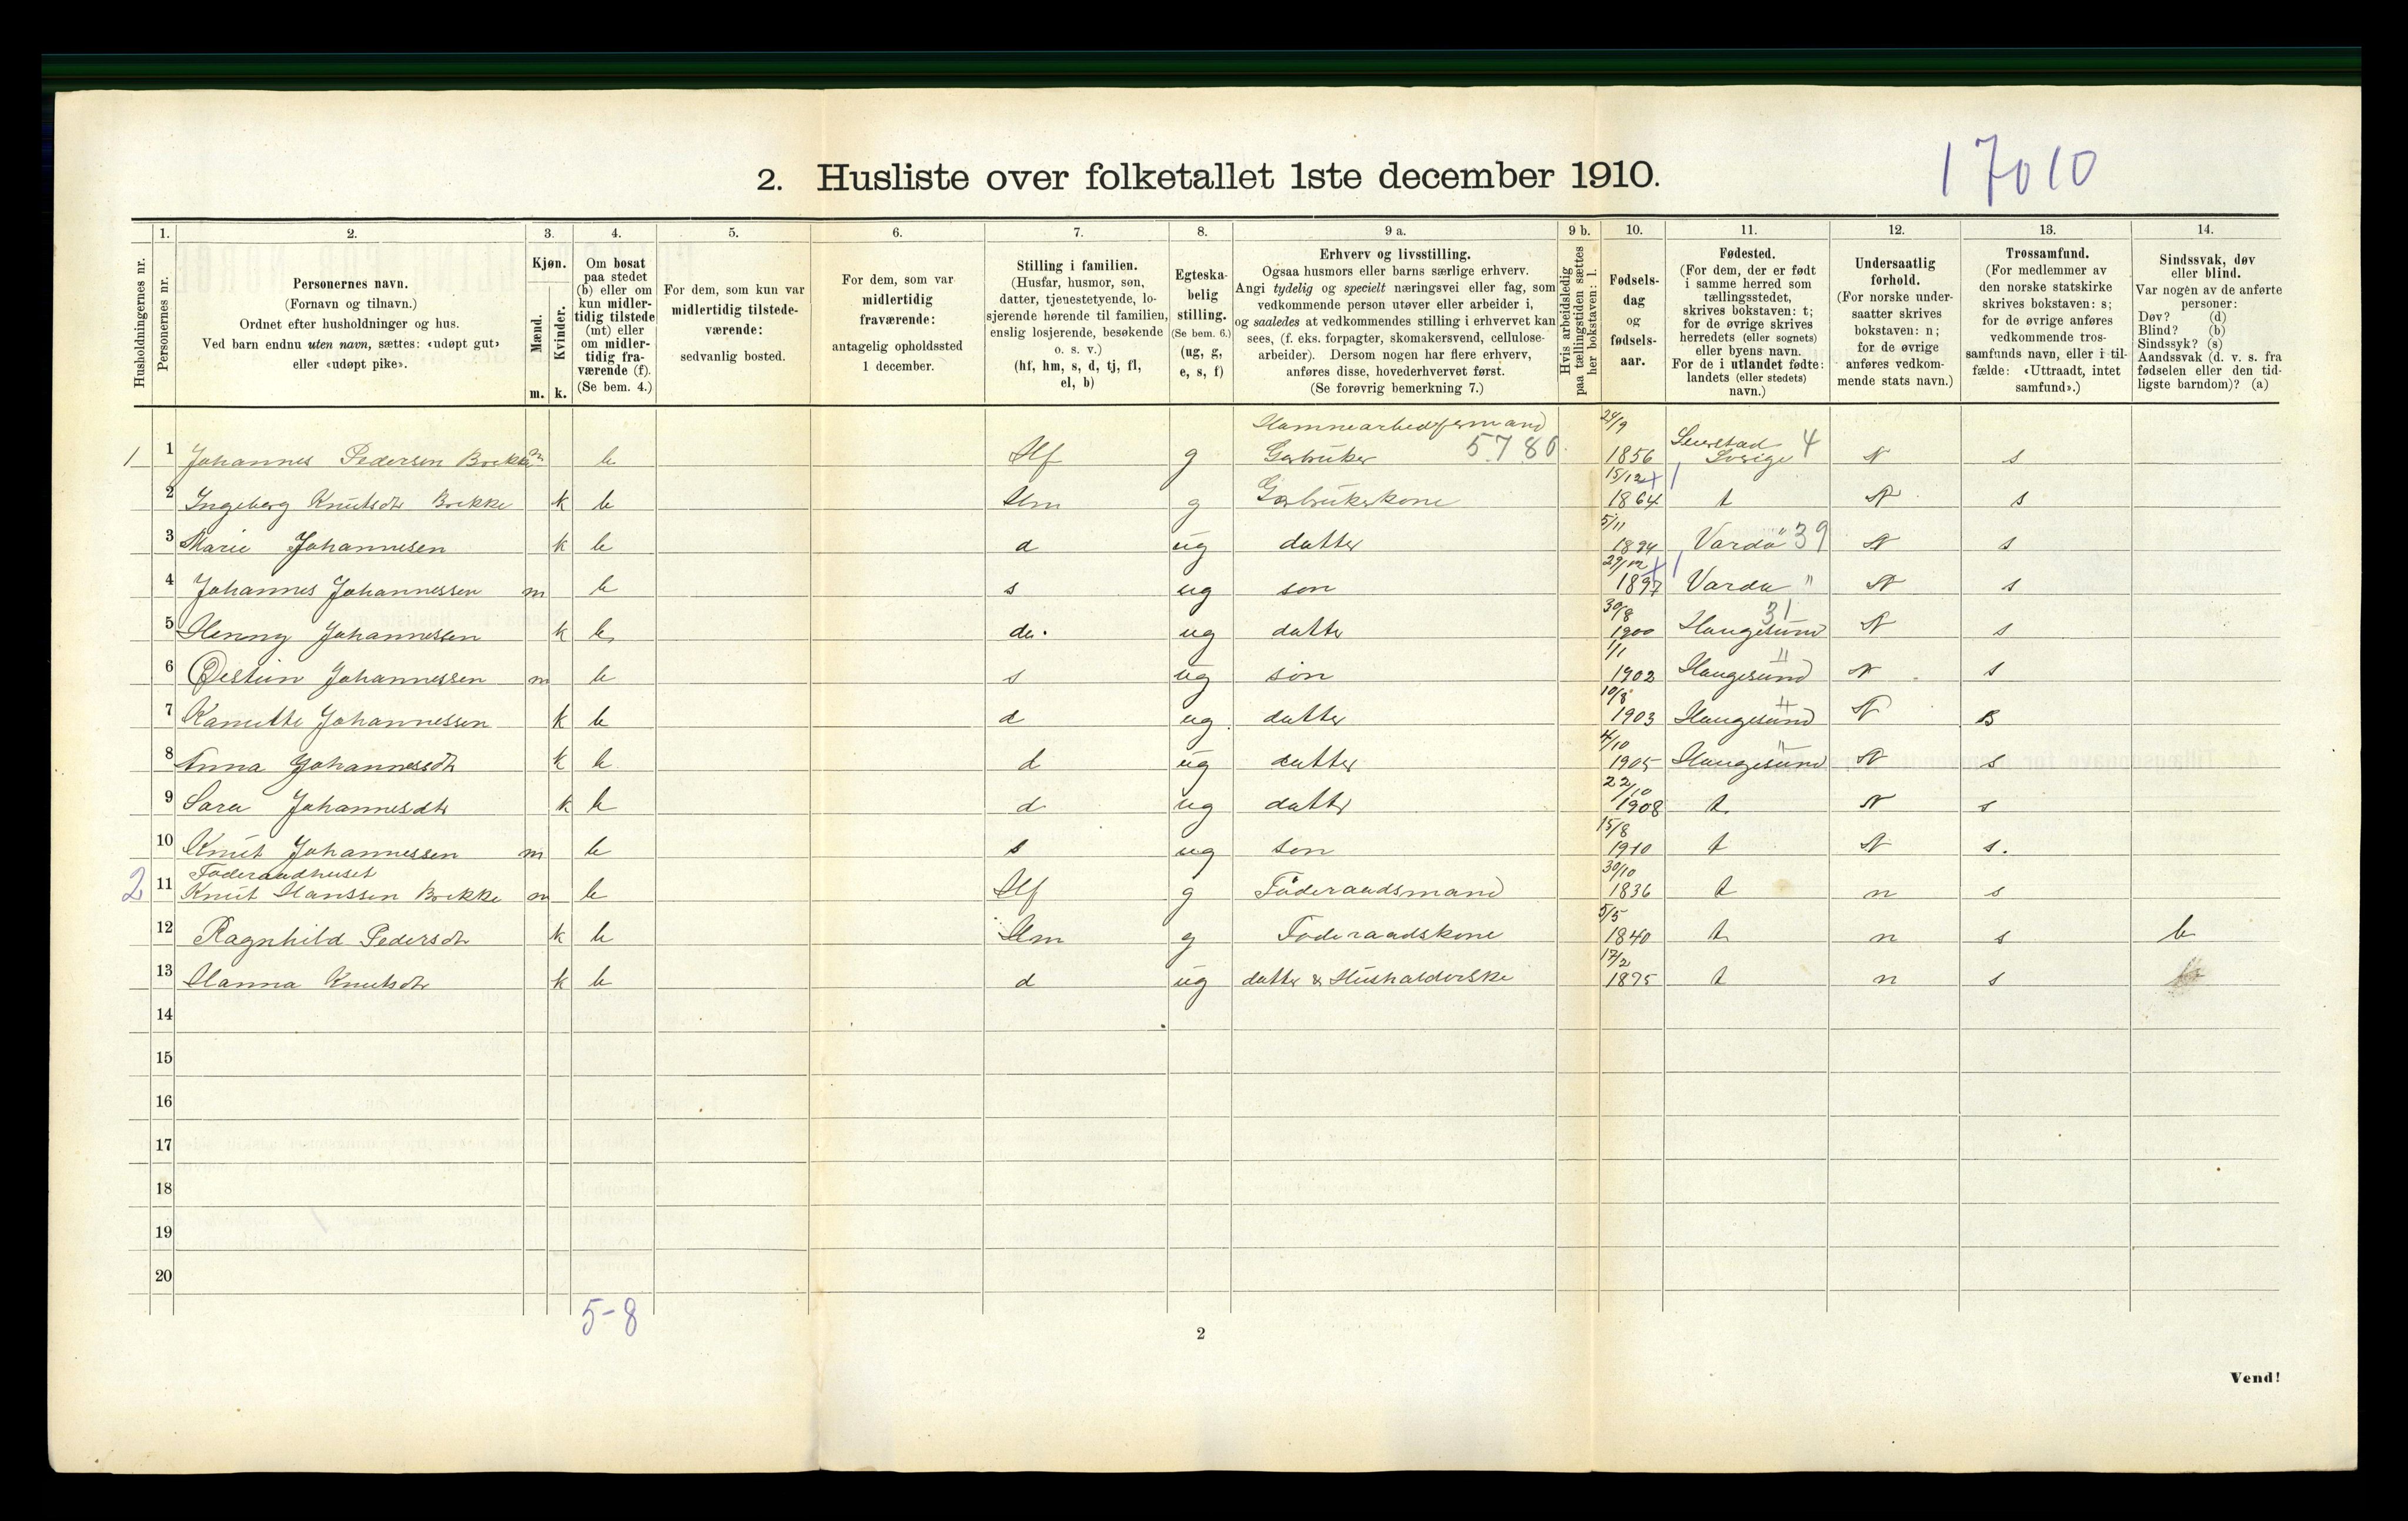 17010
2. Husliste over folketallet 1ste december 1910.
1. 2. 3. 4. 5. 6. 7. 8. 9 a. 9 b. 10. 11. 12. 13. 14.
Husholdningernes nr.
Personernes nr.
Personernes navn.
(Fornavn og tilnavn.)
Ordnet efter husholdninger og hus.
Ved barn endnu uten navn, sættes: «udøpt gut»
eller «udøpt pike».
Kjøn.
Mænd.
Kvinder.
m. k.
Om bosat
paa stedet
(b) eller om
kun midler-
tidig tilstede
(mt) eller
om midler-
tidig fra-
værende (f).
(Se bem. 4.)
For dem, som kun var
midlertidig tilstede-
værende:
sedvanlig bosted.
For dem, som var
midlertidig
fraværende:
antagelig opholdssted
1 december.
Stilling i familien.
(Husfar, husmor, søn,
datter, tjenestetyende, lo-
sjerende hørende til familien,
enslig losjerende, besøkende
o. s. v.)
(hf, hm, s, d, tj, fl,
el, b)
Egteska-
belig
stilling.
(Se bem. 6.)
(ug, g,
e, s, f)
Erhverv og livsstilling.
Ogsaa husmors eller barns særlige erhverv.
Angi tydelig og specielt næringsvei eller fag, som
vedkommende person utøver eller arbeider i,
og saaledes at vedkommendes stilling i erhvervet kan
sees, (f. eks. forpagter, skomakersvend, cellulose-
arbeider). Dersom nogen har flere erhverv,
anføres disse, hovederhvervet først.
(Se forøvrig bemerkning 7.)
Hvis arbeidsledig
paa tællingstiden sættes
her bokstaven: l.
Fødsels-
dag
og
fødsels-
aar.
Fødested.
(For dem, der er født
i samme herred som
tællingsstedet,
skrives bokstaven: t;
for de øvrige skrives
herredets (eller sognets)
eller byens navn.
For de i utlandet fødte:
landets (eller stedets)
navn.)
Undersaatlig
forhold.
(For norske under-
saatter skrives
bokstaven: n;
for de øvrige
anføres vedkom-
mende stats navn.)
Trossamfund.
(For medlemmer av
den norske statskirke
skrives bokstaven: s;
for de øvrige anføres
vedkommende tros-
samfunds navn, eller i til-
fælde: «Uttraadt, intet
samfund».)
Sindssvak, døv
eller blind.
Var nogen av de anførte
personer:
Døv? (d)
Blind? (b)
Sindssyk? (s)
Aandssvak (d. v. s. fra
fødselen eller den tid-
ligste barndom)? (a)
24/9
1 1 Johannes Pedersen Brekke m b Hf g Gaardbruker 5780 1856 Sverige 4 N s
15/12
2 Ingeborg Knutsdtr Brekke k b Hm g 1864 t N s
5/11
3 Marie Johannesen k b d ug datter 1894 Vardö 39 N s
29/12
4 Johannes Johannessen m b s ug søn 1897 Vardö " N s
30/8 31
5 Henny Johannessen k b d ug datter 1900 Haugesund N s
1/1 "
6 Øistein Johannessen m b s ug søn 1902 Haugesund N s
10/8 "
7 Johannessen k b d ug datter 1903 Haugesund N
4/10 "
8 Anna Johannessdtr k b d ug datter 1905 Haugesund N s
22/10
9 Sara Johannesdtr k b d ug datter 1908 t N s
15/8
10 Knut Johannessen m b s ug søn 1910 t N s.
Föderaadhuset 30/10
2 11 Knut Hanssen Brekke m b Hf g Föderaadsmand 1836 t n s
5/5
12 Ragnhild Pedersdtr k b Hm g Föderaadskone 1840 t n s b
17/2
13 Hanna Knutsdtr k b d ug datter & Husholderske 1875 t n s
14
15
16
17
18
19
20
5-8
2
Vend!